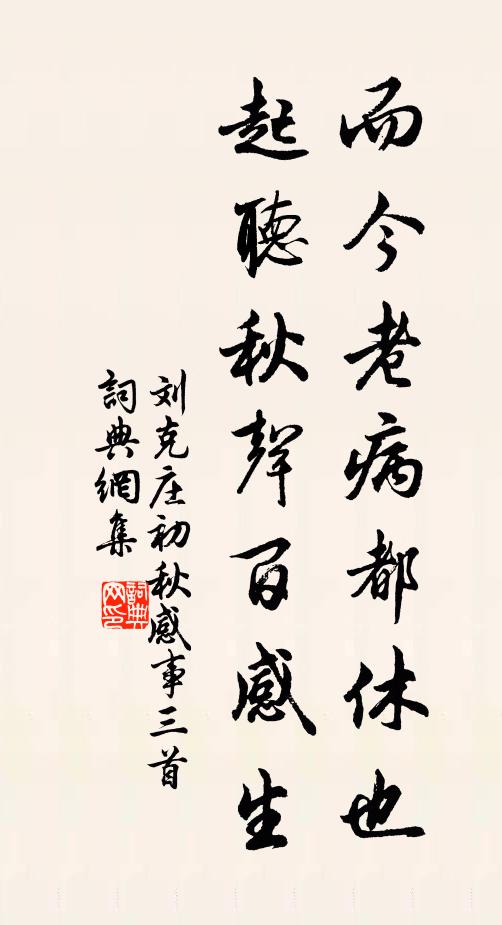 而今老病都休也
起聽秋聲百感生
刘克庄初秋感事三首
詞典網集
詞典网印